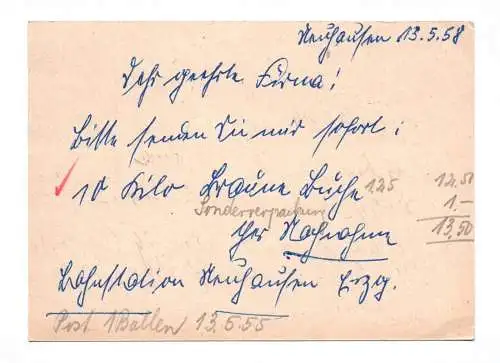 Neuhausen 13.5.58
Sehr geehrte Firma!
Bitte senden Sie mir sofort:
10 Kilo Braune Buche 125 12.50
Sonderverpackung 1.-
per Nachnahme 13,50
Bahnstation Neuhausen Erzg.
Post 1 Ballen 13.5.55